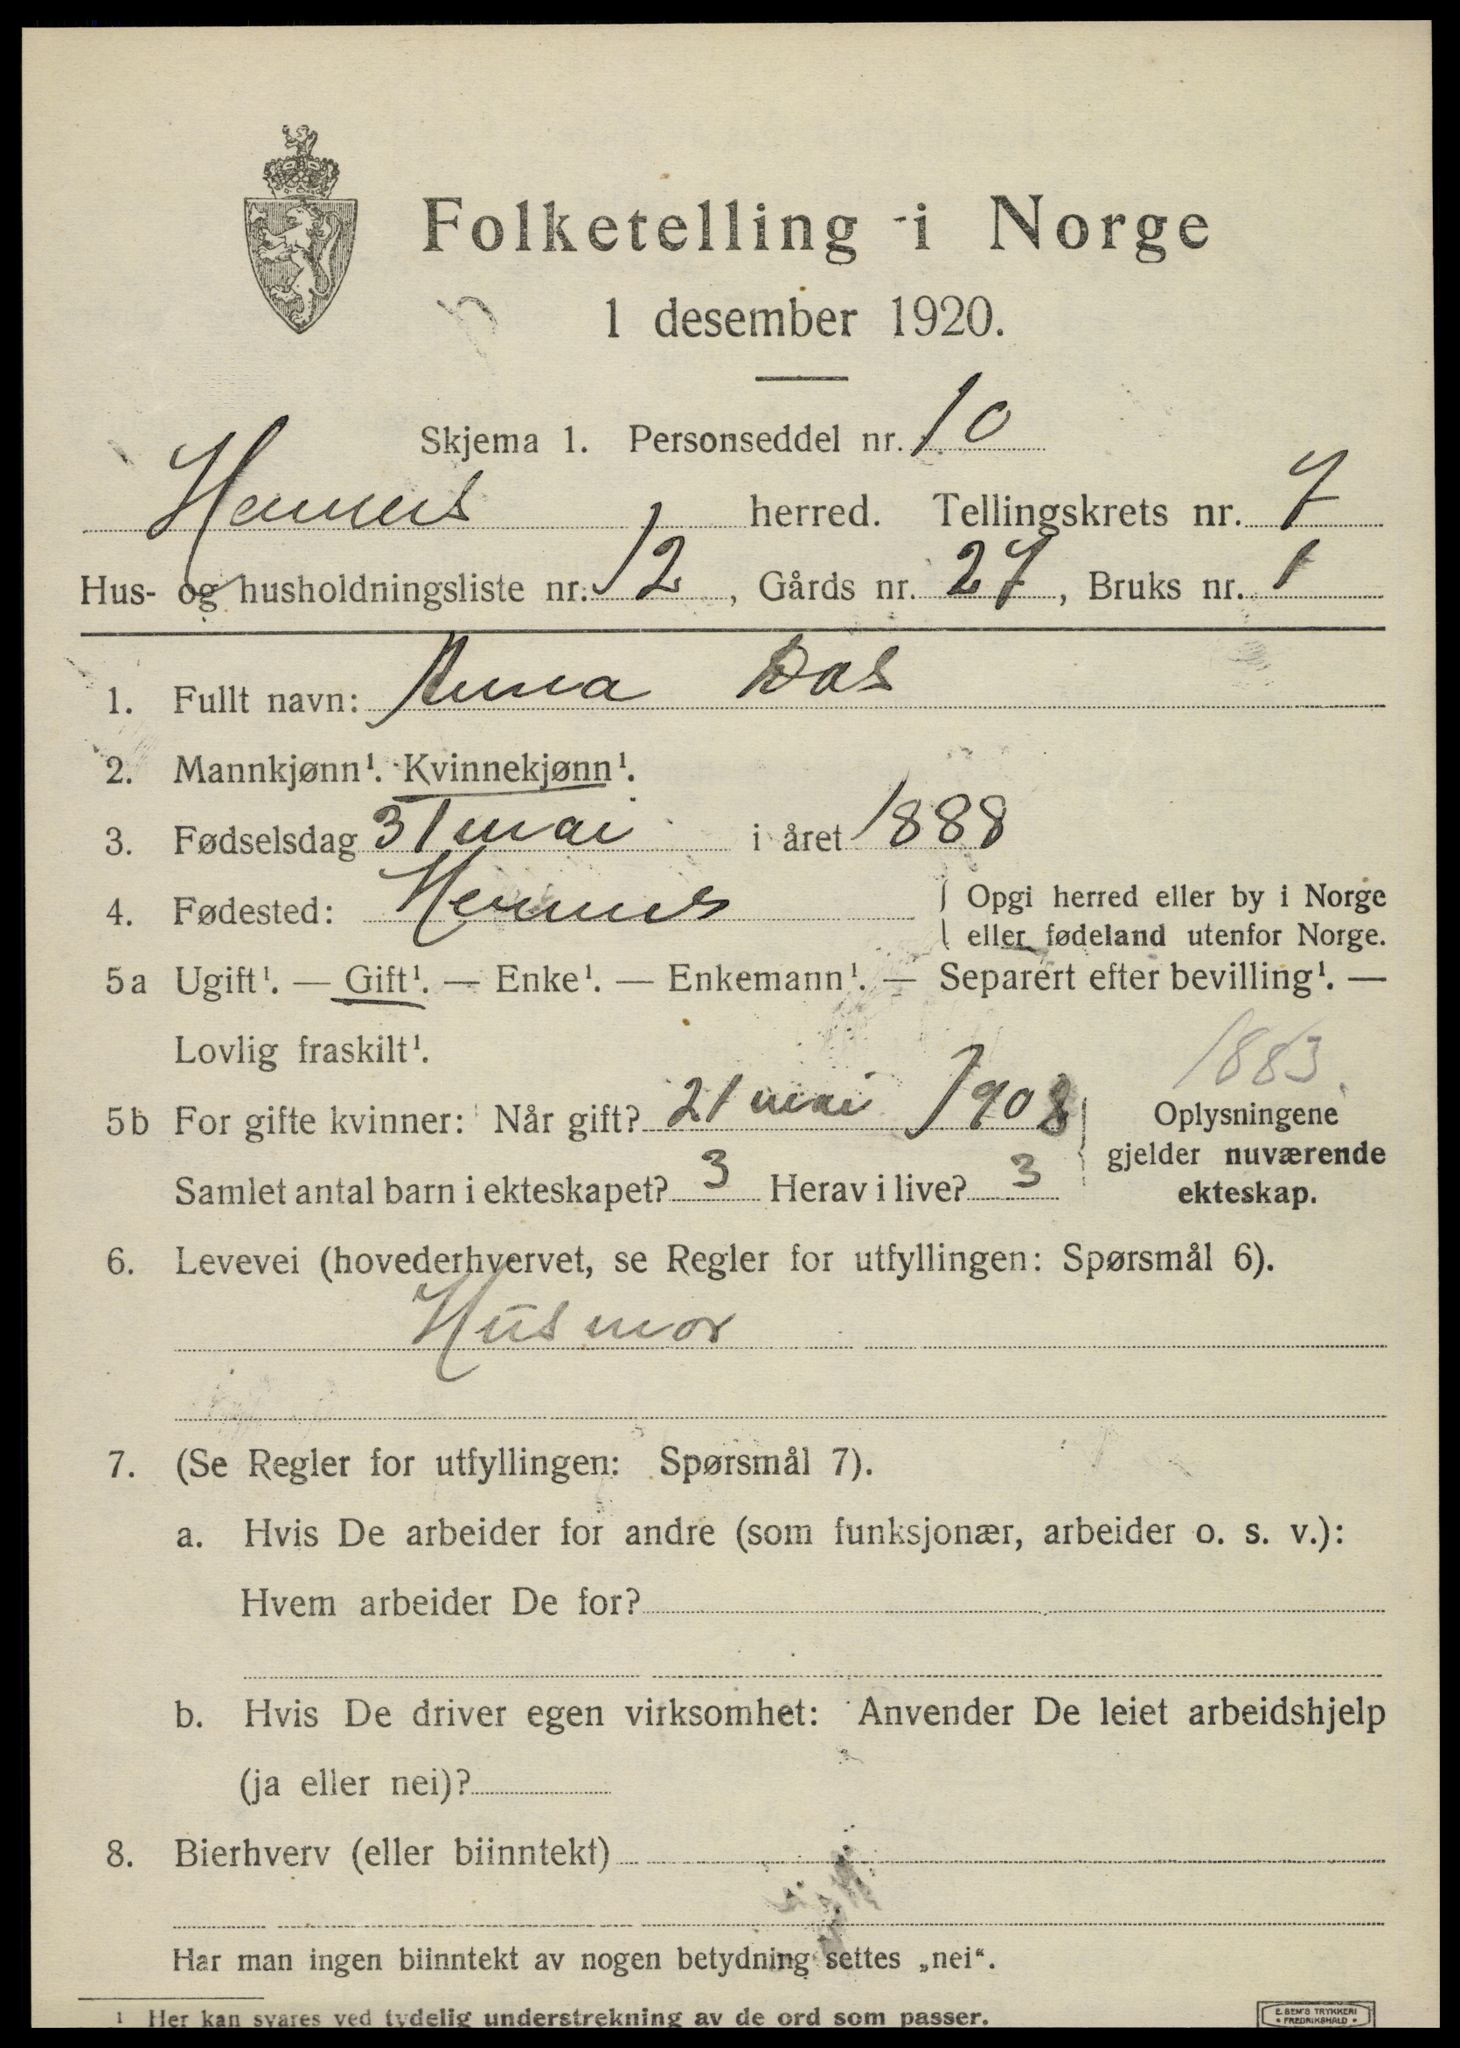 Folketelling i Norge
1 desember 1920.
Skjema 1. Personseddel nr. 10
Hemnes herred. Tellingskrets nr. 7
Hus- og husholdningsliste nr. 12, Gårds nr. 27, Bruks nr. 1
1. Fullt navn: Anna Dos
2. Mannkjønn¹. Kvinnekjønn¹.
3. Fødselsdag 31 mai i året 1888
4. Fødested: Hemnes { Opgi herred eller by i Norge
eller fødeland utenfor Norge.
5a Ugift¹. — Gift¹. — Enke¹. — Enkemann¹. — Separert efter bevilling¹. —
Lovlig fraskilt¹.
1883.
5b For gifte kvinner: Når gift? 21 mai 1908 } Oplysningene
gjelder nuværende
Samlet antal barn i ekteskapet? 3 Herav i live? 3 ekteskap.
6. Levevei (hovederhvervet, se Regler for utfyllingen: Spørsmål 6).
Husmor
7. (Se Regler for utfyllingen: Spørsmål 7).
a. Hvis De arbeider for andre (som funksjonær, arbeider o. s. v.):
Hvem arbeider De for?
b. Hvis De driver egen virksomhet: Anvender De leiet arbeidshjelp
(ja eller nei)?
8. Bierhverv (eller biinntekt)
Har man ingen biinntekt av nogen betydning settes „nei“.
¹ Her kan svares ved tydelig understrekning av de ord som passer.
E. SEM'S TRYKKERI
• FREDRIKSHALD •